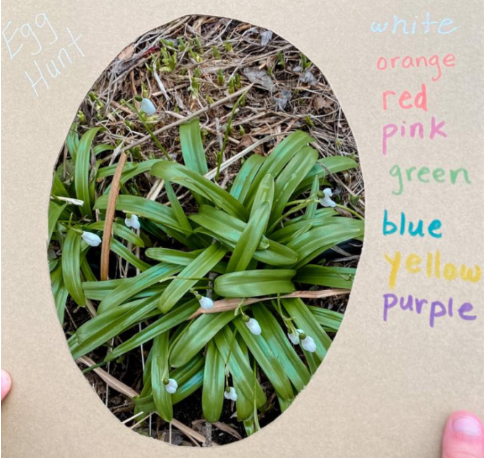 Egg
Hunt
white
orange
red
pink
green
blue
yellow
purple